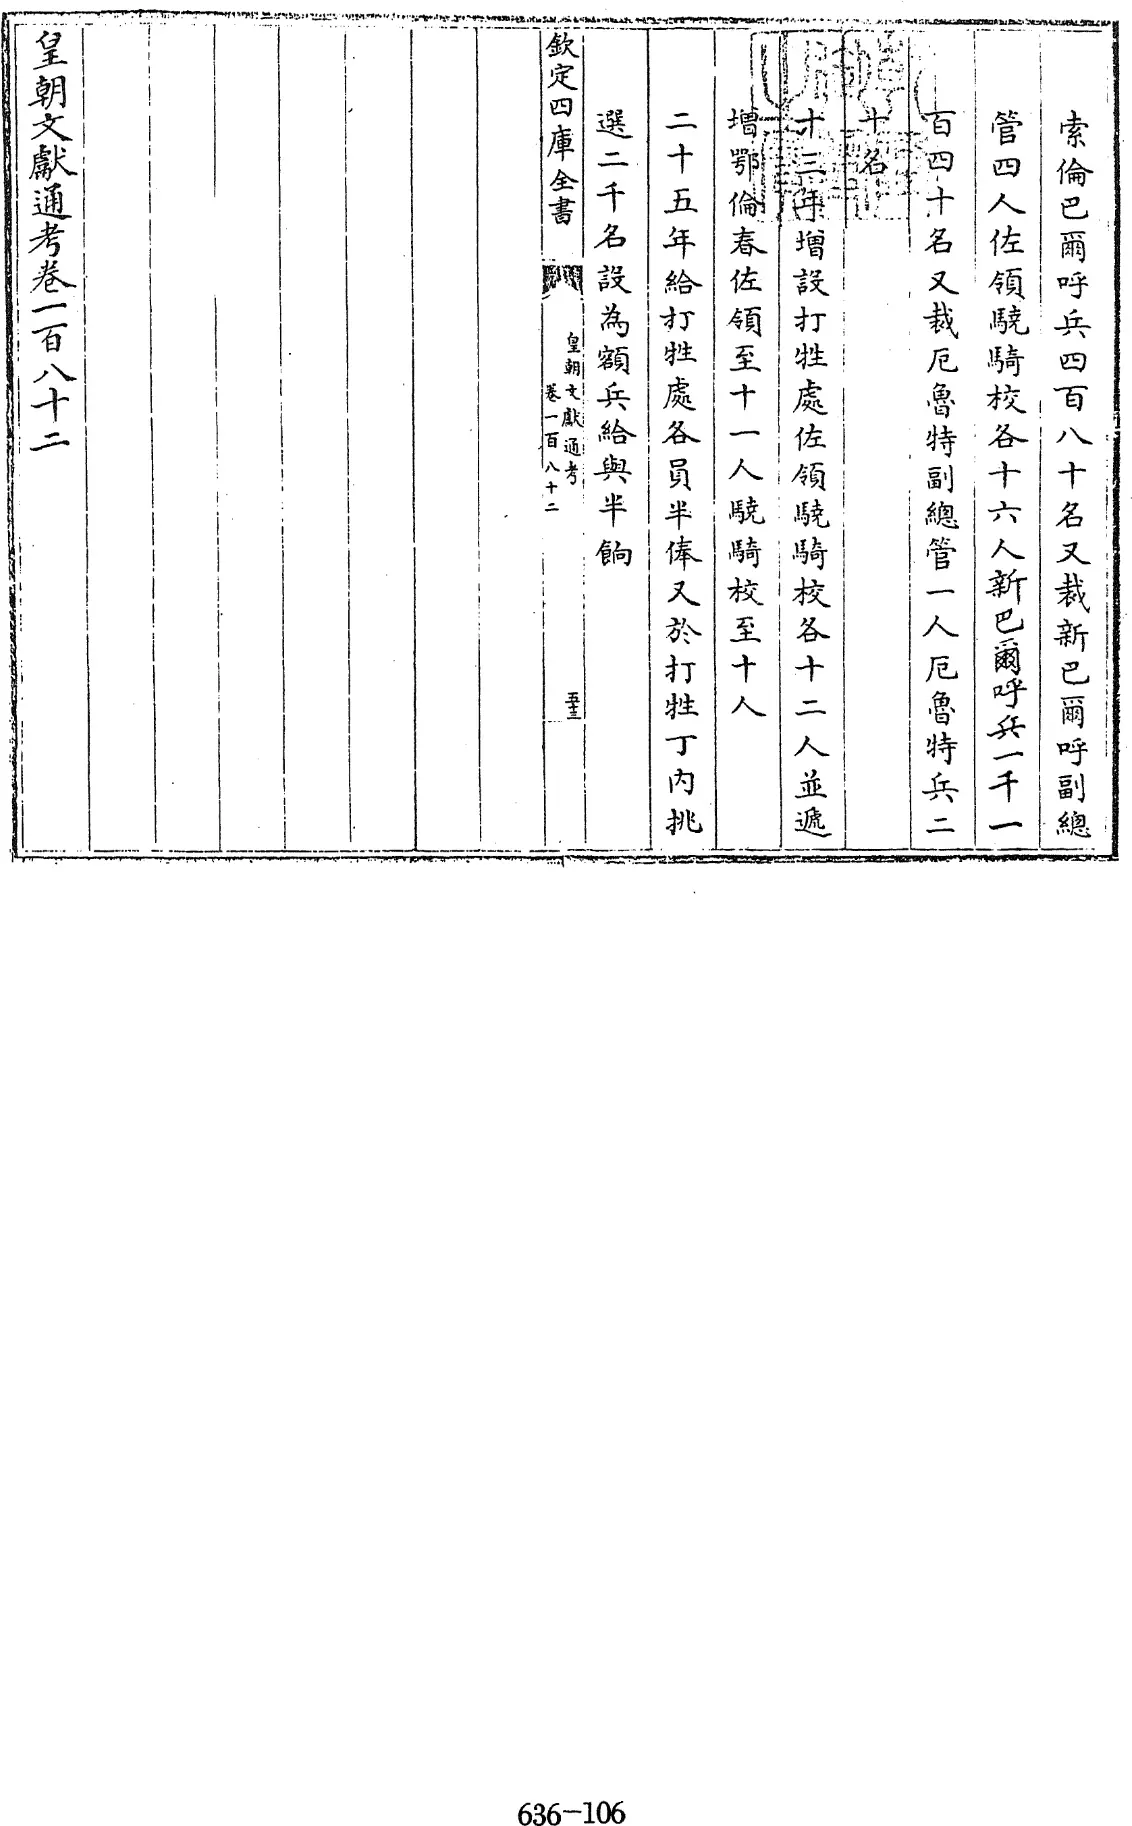 索倫巴爾呼兵四百八十名又裁新巴爾呼副總
管四人佐領驍騎校各十六人新巴爾呼兵一千一
百四十名又裁厄魯特副總管一人厄魯特兵二
十名
十三年增設打牲處佐領驍騎校各十二人並遞
增鄂倫春佐領至十一人驍騎校至十人
二十五年給打牲處各員半俸又於打牲丁內挑
選二千名設為額兵給與半餉
欽定四庫全書
皇朝文獻通考
卷一百八十二
五十三
皇朝文獻通考卷一百八十二
636-106